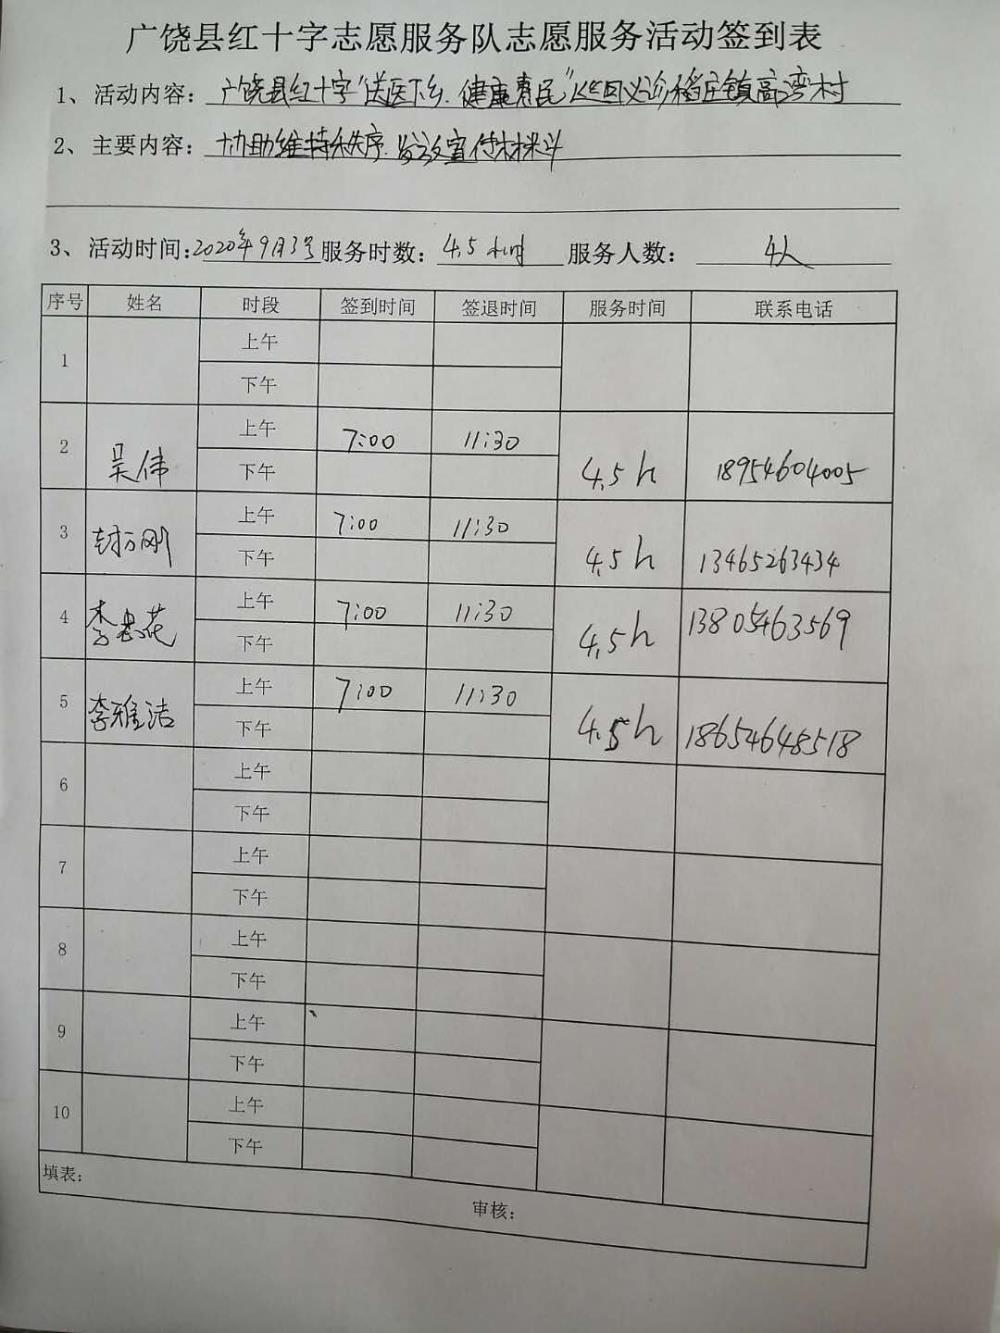 广饶县红十字志愿服务队志愿服务活动签到表
1、活动内容：广饶县红十字“送医下乡.健康惠民”巡回义诊稻庄镇高湾村
2、主要内容：协助维持秩序.发放宣传材料
3、活动时间：2020年9月3号 服务时数：4.5小时 服务人数：4人
序号 姓名 时段 签到时间 签退时间 服务时间 联系电话
1 上午
下午
2 吴伟 上午 7:00 11:30 4.5h 18954604005
下午
3 封万刚 上午 7:00 11:30 4.5h 13465263434
下午
4 李花 上午 7:00 11:30 4.5h 13805463569
下午
5 李雅洁 上午 7:00 11:30 4.5h 18654648518
下午
6 上午
下午
7 上午
下午
8 上午
下午
9 上午
下午
10 上午
下午
填表：
审核：